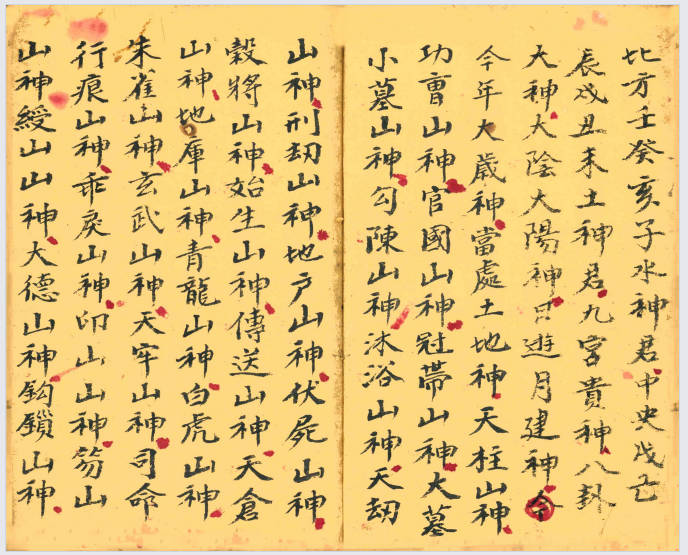 北方壬癸亥子水神君中央戊己
辰戌丑未土神君九宮貴神八卦
大神大陰大陽神日遊月建神今
今年大歲神當處土地神天柱山神
功曺山神官國山神冠帯山神大墓
小墓山神勾陳山神沐浴山神天刧
山神刑刧山神地户山神伏屍山神
穀將山神始生山神傳送山神天倉
山神地庫山神青龍山神白虎山神
朱雀山神玄武山神天牢山神司命
行痕山神乖戾山神印山山神笏山
山神綬山山神大德山神鈎鎖山神